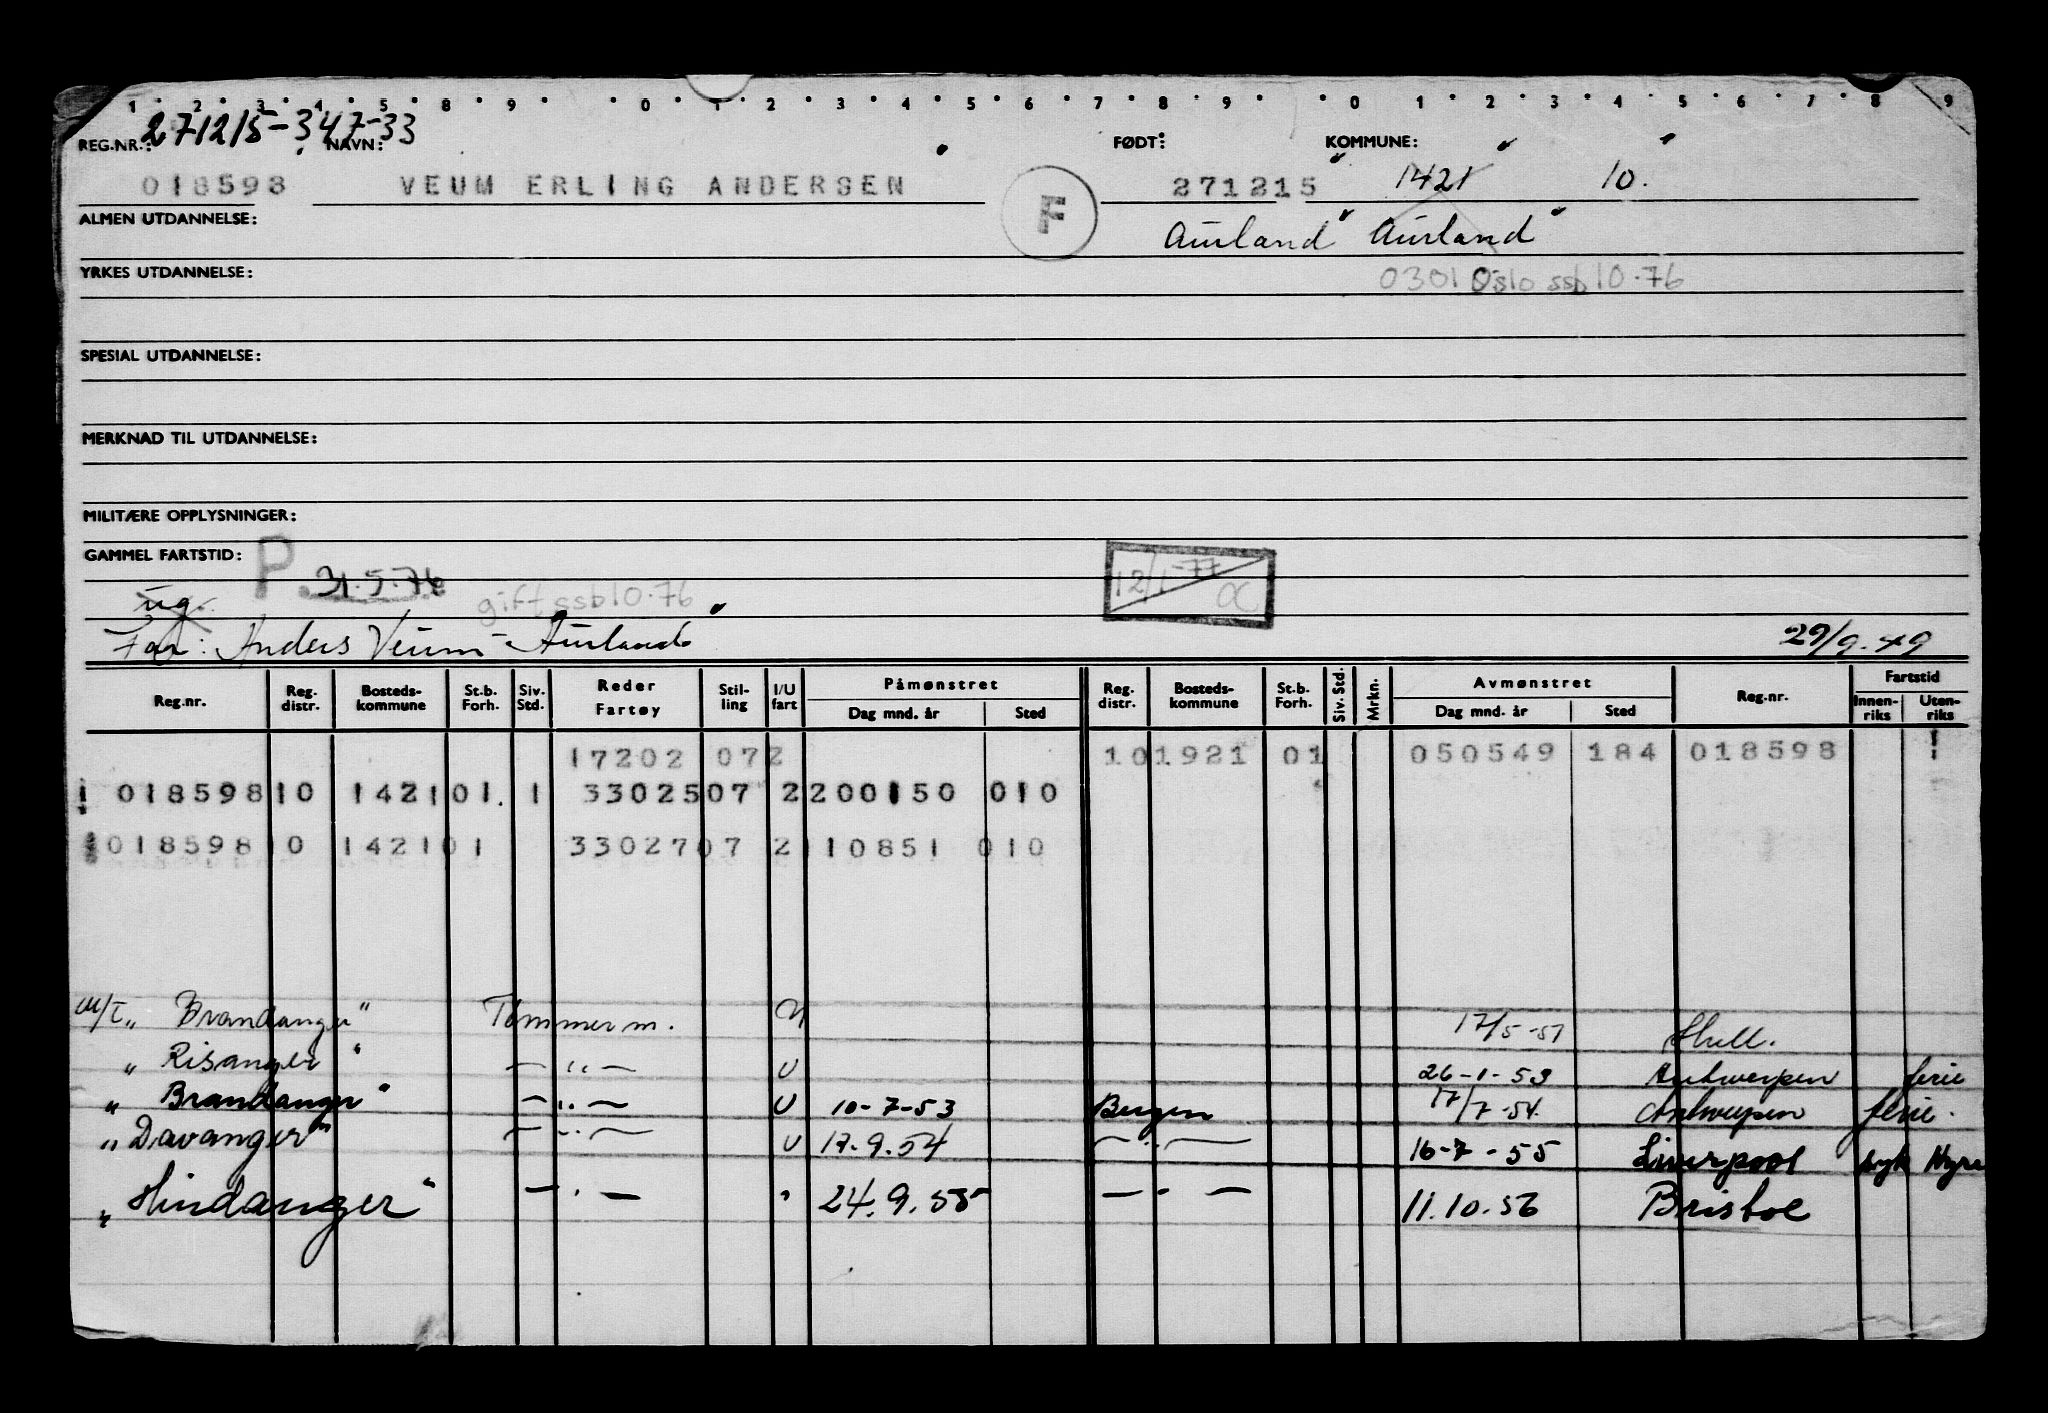 1 2 3 4 5 8 9 0 1 2 3 4 5 6 7 8 9 0 1 2 3 4 5 6 7 8 9
271215-347-33
REG.NR.: NAVN: FØDT: KOMMUNE:
018598 VEUM ERLING ANDERSEN F 271215 1421 10.
ALMEN UTDANNELSE: Aurland Aurland
YRKES UTDANNELSE: 0301 Oslo ssb 10.76
SPESIAL UTDANNELSE:
MERKNAD TIL UTDANNELSE:
MILITÆRE OPPLYSNINGER:
GAMMEL FARTSTID: P 31.5.76 12/1-77
ug. gift ssb 10.76
Far: Anders Veum - Aurland 29/9.49
Reg.nr. Reg. distr. Bosteds-kommune St.b. Forh. Siv. Std. Reder Fartøy Stil-ling I/U fart Påmønstret Dag mnd. år Sted Reg. distr. Bosteds-kommune St.b. Forh. Siv. Std. Mrkn. Avmønstret Dag mnd. år Sted Reg.nr. Fartstid Innen-riks Uten-riks
17202 072 101921 01 050549 184 018598 1
1 018598 10 1421 01. 1 33025 07 2 200150 010
018598 10 1421 01 33027 07 2 110851 010
M/T " Brandanger " Tømmerm. U 17/5-51 Hull.
" Risanger " — " — U 26-1-53 Antwerpen ferie
" Brandanger " — " — U 10-7-53 Bergen 17/7-54. Antwerpen ferie.
" Davanger " — " — U 17.9.54 — " — 16-7-55 Liverpool syk Hyre
" Hindanger " — " — " 24.9.55 — " — 11.10.56 Bristol